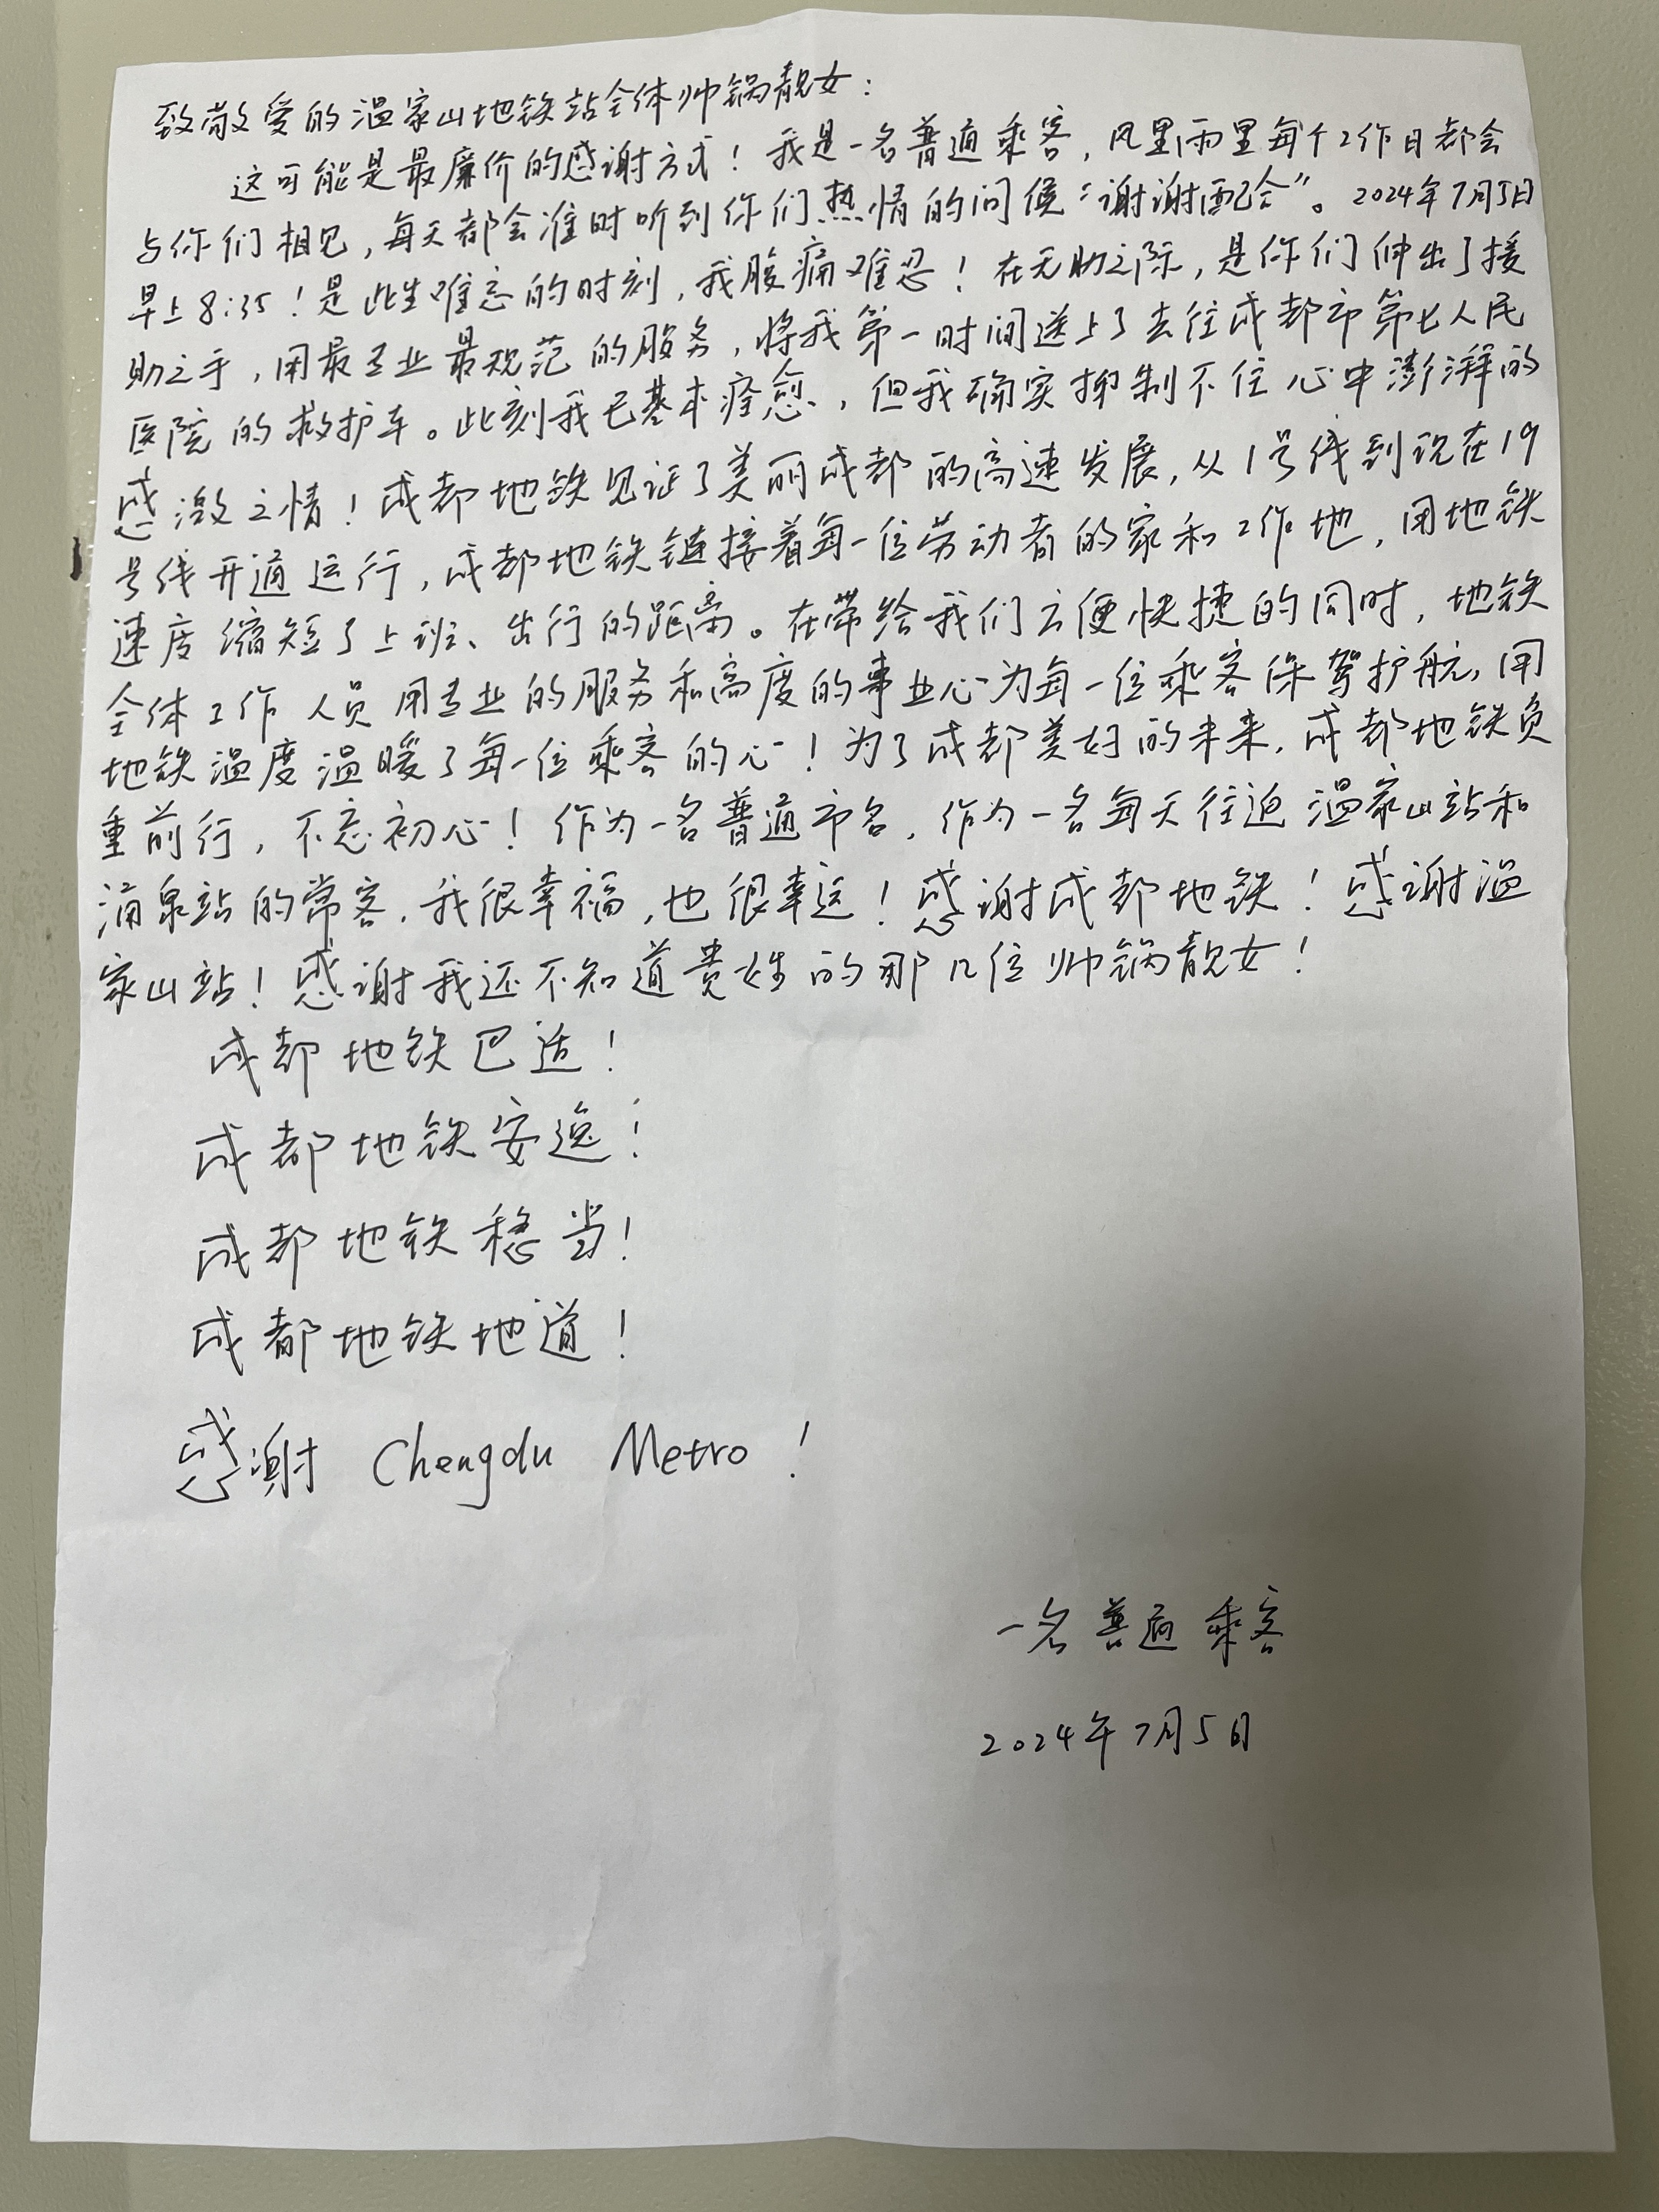 致敬爱的温家山地铁站全体帅锅靓女：
这可能是最廉价的感谢方式！我是一名普通乘客，风里雨里每个工作日都会
与你们相见，每天都会准时听到你们热情的问候“谢谢配合”。2024年7月5日
早上8:35！是此生难忘的时刻，我腹痛难忍！在无助之际，是你们伸出了援
助之手，用最专业最规范的服务，将我第一时间送上了去往成都市第七人民
医院的救护车。此刻我已基本痊愈，但我确实抑制不住心中澎湃的
感激之情！成都地铁见证了美丽成都的高速发展，从1号线到现在19
号线开通运行，成都地铁链接着每一位劳动者的家和工作地，用地铁
速度缩短了上班、出行的距离。在带给我们方便快捷的同时，地铁
全体工作人员用专业的服务和高度的事业心为每一位乘客保驾护航，用
地铁温度温暖了每一位乘客的心！为了成都美好的未来，成都地铁负
重前行，不忘初心！作为一名普通市名，作为一名每天往返温家山站和
涌泉站的常客，我很幸福，也很幸运！感谢成都地铁！感谢温
家山站！感谢我还不知道贵姓的那几位帅锅靓女！
成都地铁巴适！
成都地铁安逸！
成都地铁稳当！
成都地铁地道！
感谢 Chengdu Metro！
一名普通乘客
2024年7月5日